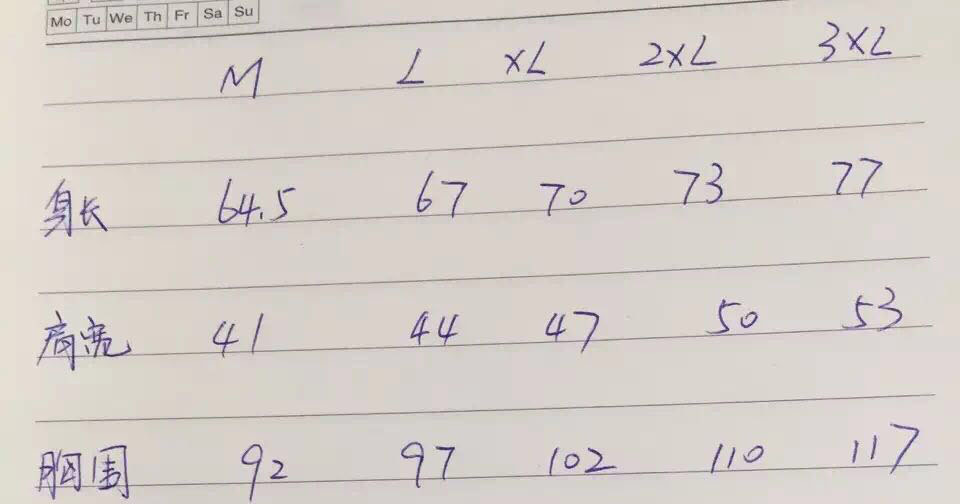 Mo Tu We Th Fr Sa Su
M L XL 2XL 3XL
身长 64.5 67 70 73 77
肩宽 41 44 47 50 53
胸围 92 97 102 110 117